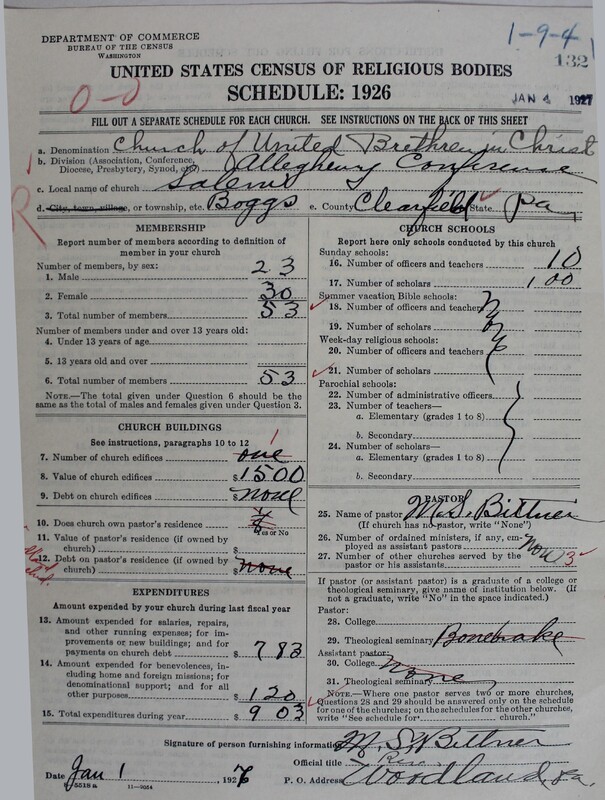 DEPARTMENT OF COMMERCE
BUREAU OF THE CENSUS
WASHINGTON
1-9-4
132
UNITED STATES CENSUS OF RELIGIOUS BODIES
SCHEDULE: 1926
JAN 4 1927
FILL OUT A SEPARATE SCHEDULE FOR EACH CHURCH. SEE INSTRUCTIONS ON THE BACK OF THIS SHEET
a. Denomination Church of United Brethren in Christ
b. Division (Association, Conference, Diocese, Presbytery, Synod, etc.) Allegheny Conference
c. Local name of church Salem
d. City, town, village, or township, etc. Boggs e. County Clearfield State Pa
R
MEMBERSHIP
Report number of members according to definition of
member in your church
Number of members, by sex:
1. Male 23
2. Female 30
3. Total number of members 53
Number of members under and over 13 years old:
4. Under 13 years of age
5. 13 years old and over
6. Total number of members 53
NOTE.—The total given under Question 6 should be
same as the total of males and females given under Question 3.
CHURCH BUILDINGS
See instructions, paragraphs 10 to 12
7. Number of church edifices one 1
8. Value of church edifices $ 1500
9. Debt on church edifices $ none
10. Does church own pastor's residence
Yes or No
11. Value of pastor's residence (if owned by
church) $
12. Debt on pastor's residence (if owned by
church) $ none
EXPENDITURES
Amount expended by your church during last fiscal year
13. Amount expended for salaries, repairs,
and other running expenses; for im-
provements or new buildings; and for
payments on church debt $ 783
14. Amount expended for benevolences, in-
cluding home and foreign missions; for
denominational support; and for all
other purposes $ 120
15. Total expenditures during year $ 903
CHURCH SCHOOLS
Report here only schools conducted by this church
Sunday schools:
16. Number of officers and teachers 10
17. Number of scholars 100
Summer vacation Bible schools:
18. Number of officers and teachers
19. Number of scholars
Week-day religious schools:
20. Number of officers and teachers
21. Number of scholars
Parochial schools:
22. Number of administrative officers
23. Number of teachers—
a. Elementary (grades 1 to 8)
b. Secondary
24. Number of scholars—
a. Elementary (grades 1 to 8)
b. Secondary
PASTOR
25. Name of pastor M. S. Bittner
(If church has no pastor, write "None")
26. Number of ordained ministers, if any, em-
ployed as assistant pastors None
27. Number of other churches served by the
pastor or his assistants 3
If pastor (or assistant pastor) is a graduate of a college or
theological seminary, give name of institution below. (If
not a graduate, write "No" in the space indicated.)
Pastor:
28. College
29. Theological seminary Bonebrake
Assistant pastor:
30. College None
31. Theological seminary
NOTE.—Where one pastor serves two or more churches,
Questions 28 and 29 should be answered only on the schedule
for one of the churches; on the schedules for the other churches,
write "See schedule for church."
Signature of person furnishing information M. S. Bittner
Official title Rev.
Date Jan 1, 1927 P. O. Address Woodland, Pa.
5518 a 11-5054